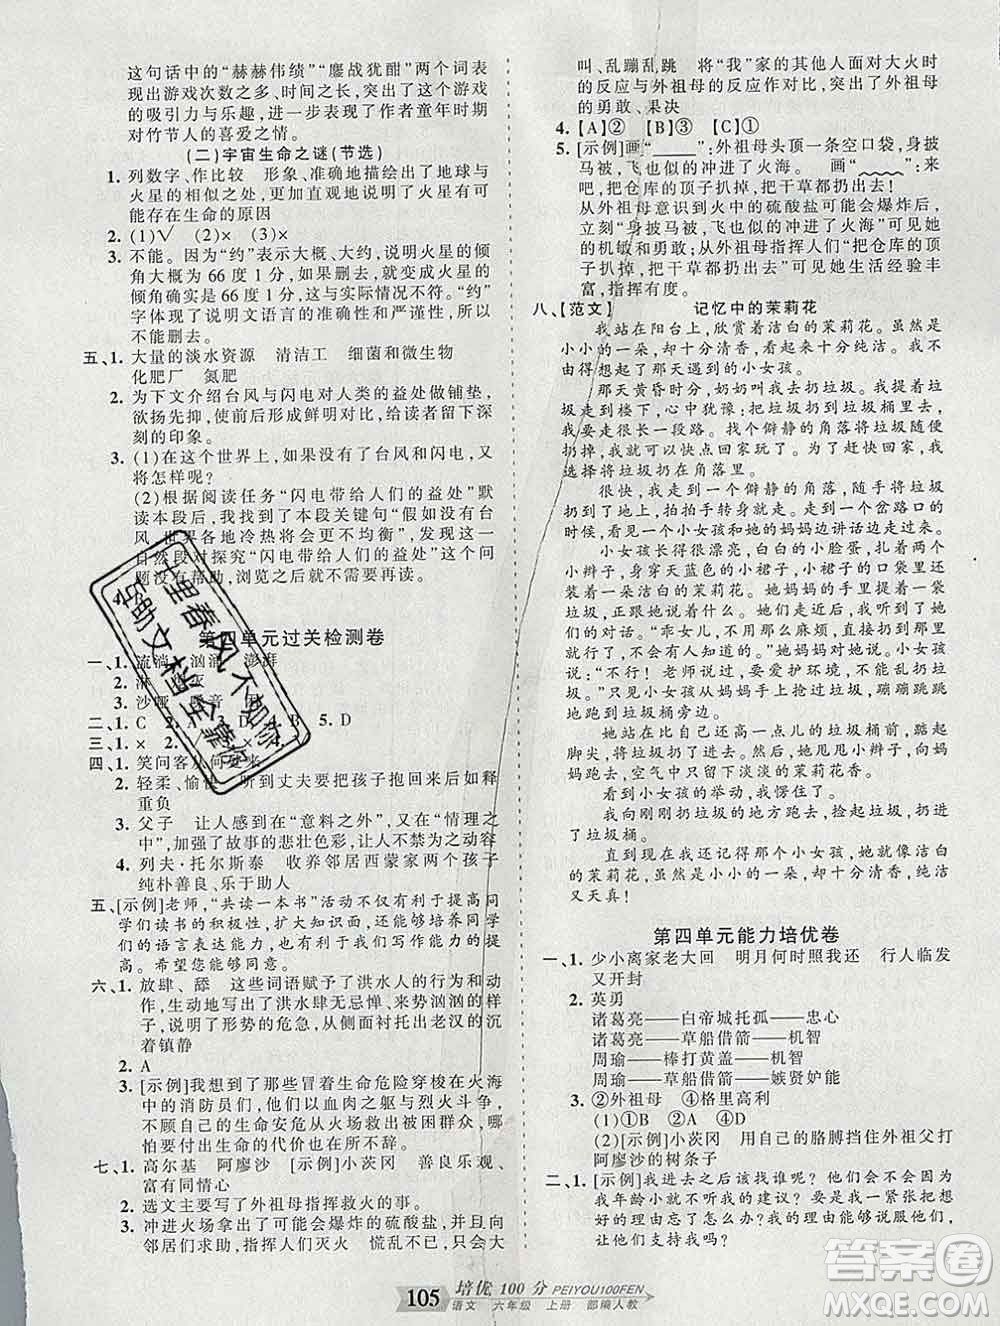 这句话中的“赫赫伟绩”“鏖战犹酣”两个词表
现出游戏次数之多、时间之长,突出了这个游戏
的吸引力与乐趣,进一步表现了作者童年时期
对竹节人的喜爱之情。
(二)宇宙生命之谜(节选)
1. 列数字、作比较 形象、准确地描绘出了地球与
火星的相似之处,更加直观地说明了火星可能
存在生命的原因
2. (1)√ (2)× (3)×
3. 不能。因为“约”表示大概、大约,说明火星的倾
角大概为 66 度 1 分,如果删去,就变成火星的
倾角为 66 度 1 分,这与实际情况不符。“约”
字体现了说明文语言的准确性和严谨性,所以
不能删去。
五、1. 大量的淡水资源 清洁工 细菌和微生物
化肥厂 氮肥
2. 为下文介绍台风与闪电对人类的益处做铺垫,
欲扬先抑,使前后形成鲜明对比,给读者留下深
刻的印象。
3. (1)在这个世界上,如果没有了台风和闪电,又
将怎样呢?
(2)根据阅读任务“闪电带给人们的益处”默
读本段后,我找到了本段关键句“假如没有台
风,世界各地冷热将会更不均衡”,发现这一
自然段对探究“闪电带给人们的益处”这个问
题没有帮助,浏览之后就不需要再读。
第四单元过关检测卷
一、1. 流淌 汹涌 澎湃
2. 淋
3. 沙哑 嗓音
二、1. C 2. A 3. D 4. B 5. D
三、1. × 2.
四、1. 笑问客从何处来
2. 轻柔、愉快 听到丈夫要把孩子抱回来后如释
重负
3. 父子 让人感到在“意料之外”,又在“情理之
中”,加强了故事的悲壮色彩,让人不禁为之动容
4. 列夫·托尔斯泰 收养邻居西蒙家两个孩子
纯朴善良、乐于助人
五、[示例]老师,“共读一本书”活动不仅有利于提高同
学们读书的积极性,扩大知识面,还能够培养同学
们的语文素养,提高学习能力,对我们各方面都有提
高。希望您能够组织这样的活动,谢谢您。
六、1. 放肆、舔 这些词语赋予了洪水人的行为和动
作,生动地写出了洪水肆无忌惮、来势汹汹的样
子,说明了形势的危急,从侧面衬托出老汉的沉
着镇静
2. A
3. [示例]我想到了那些冒着生命危险穿梭在火海
中的消防员们,他们以血肉之躯与烈火展开殊
死搏斗,不顾自己的生命安危从火场救出被困群众,哪
怕要付出生命的代价也在所不惜。
七、1. 高尔基 阿廖沙 [示例]小茨冈 善良乐观、
富有同情心
2. 选文主要写了外祖母指挥救火的事。
3. 冲进火场拿出了可能会爆炸的硫酸盐,并大声向
邻居们求助,指挥人们灭火 慌乱不已,只会大
叫、乱蹦乱跳 将“我”家的其他人面对大火时
的反应与外祖母的反应作对比,突出了外祖母
的勇敢、果决
4. 【A】② 【B】③ 【C】①
5. [示例]画“____”:外祖母头顶一条空口袋,身披
马被,飞也似的冲进了火海。 画“﹏﹏”:来
吧,把仓库的顶子扒掉,把干草都扔出去!
从外祖母意识到火中的硫酸盐可能会爆炸后,
立刻“身披马被,飞也似的冲进了火海”可见她
的机敏和勇敢;从外祖母指挥人们“把仓库的顶
子扒掉,把干草都扔出去”可见她生活经验丰
富,指挥有度。
八、【范文】 记忆中的茉莉花
我站在阳台上,欣赏着洁白的茉莉花。虽然是
小小的一朵,却十分清香,又十分纯洁。我不由
得想起了那天遇到的小女孩。
那天黄昏时分,奶奶叫我去扔垃圾。我提着垃
圾走到楼下,心中犹豫:把垃圾扔到垃圾桶里去,
就要走很长的一段路。找个僻静的角落扔掉垃
圾,我就可以快点回家玩了。为了赶快回家,我
选择将垃圾扔在角落里。
很快,我到了一个僻静的角落,随手将垃圾
往地上一扔,拍拍手转身就走。走到一个岔路口的
时候,我看见一个小女孩和她的妈妈边讲话边走过来。
小女孩长得很漂亮,白白的小脸蛋,扎着小
辫子,身穿天蓝色的小裙子,小裙子的口袋里
还装着几朵洁白的茉莉花。她们走到我扔垃圾
的地方停了下来,小女孩弯腰捡起了垃圾,她妈妈
笑着说:“乖女儿,不用那么麻烦,扔这里吧,不
会有人知道的。”她妈妈对她说。小女孩却义正词
严地说:“不行!老师说过,要爱护环境,不能乱扔
垃圾!”说着,小女孩从妈妈手里接过垃圾,蹦蹦跳跳
地走到垃圾桶旁边。
她站在比自己高一点儿的垃圾桶前,踮起
脚尖,将垃圾扔了进去。她甩甩小辫子,跑向
妈妈,空气中只留下淡淡的茉莉花香。
看到小女孩的举动,我愣住了。
我向刚刚扔垃圾的地方跑去,捡起垃圾,扔进
了垃圾桶。
直到现在我还记得那个小女孩,她就像洁白
的茉莉花,虽然是小小的一朵,却十分清香,纯洁
又天真!
第四单元能力培优卷
一、1. 少小离家老大回 明月何时照我还 行人临发
又开封
2. 英勇
诸葛亮——白帝城托孤——忠心
诸葛亮——草船借箭——机智
周瑜——棒打黄盖——机智
周瑜——草船借箭——嫉贤妒能
3. ②外祖母 ④格里高利
(1)① ②A ④D
(2)[示例]小茨冈 用自己的胳膊挡住外祖父打
阿廖沙的树条子
二、1. [示例]我进去之后该找谁?他们会不会因为
我年龄小就不听我的建议?要是我一紧张把想
好的理由忘了怎么办?我的理由能够说服他们,
让他们支持我吗?
105
培优 100 分 PEIYOU100FEN
语文 六年级 上册 部编人教
答案圈
MXQE.COM